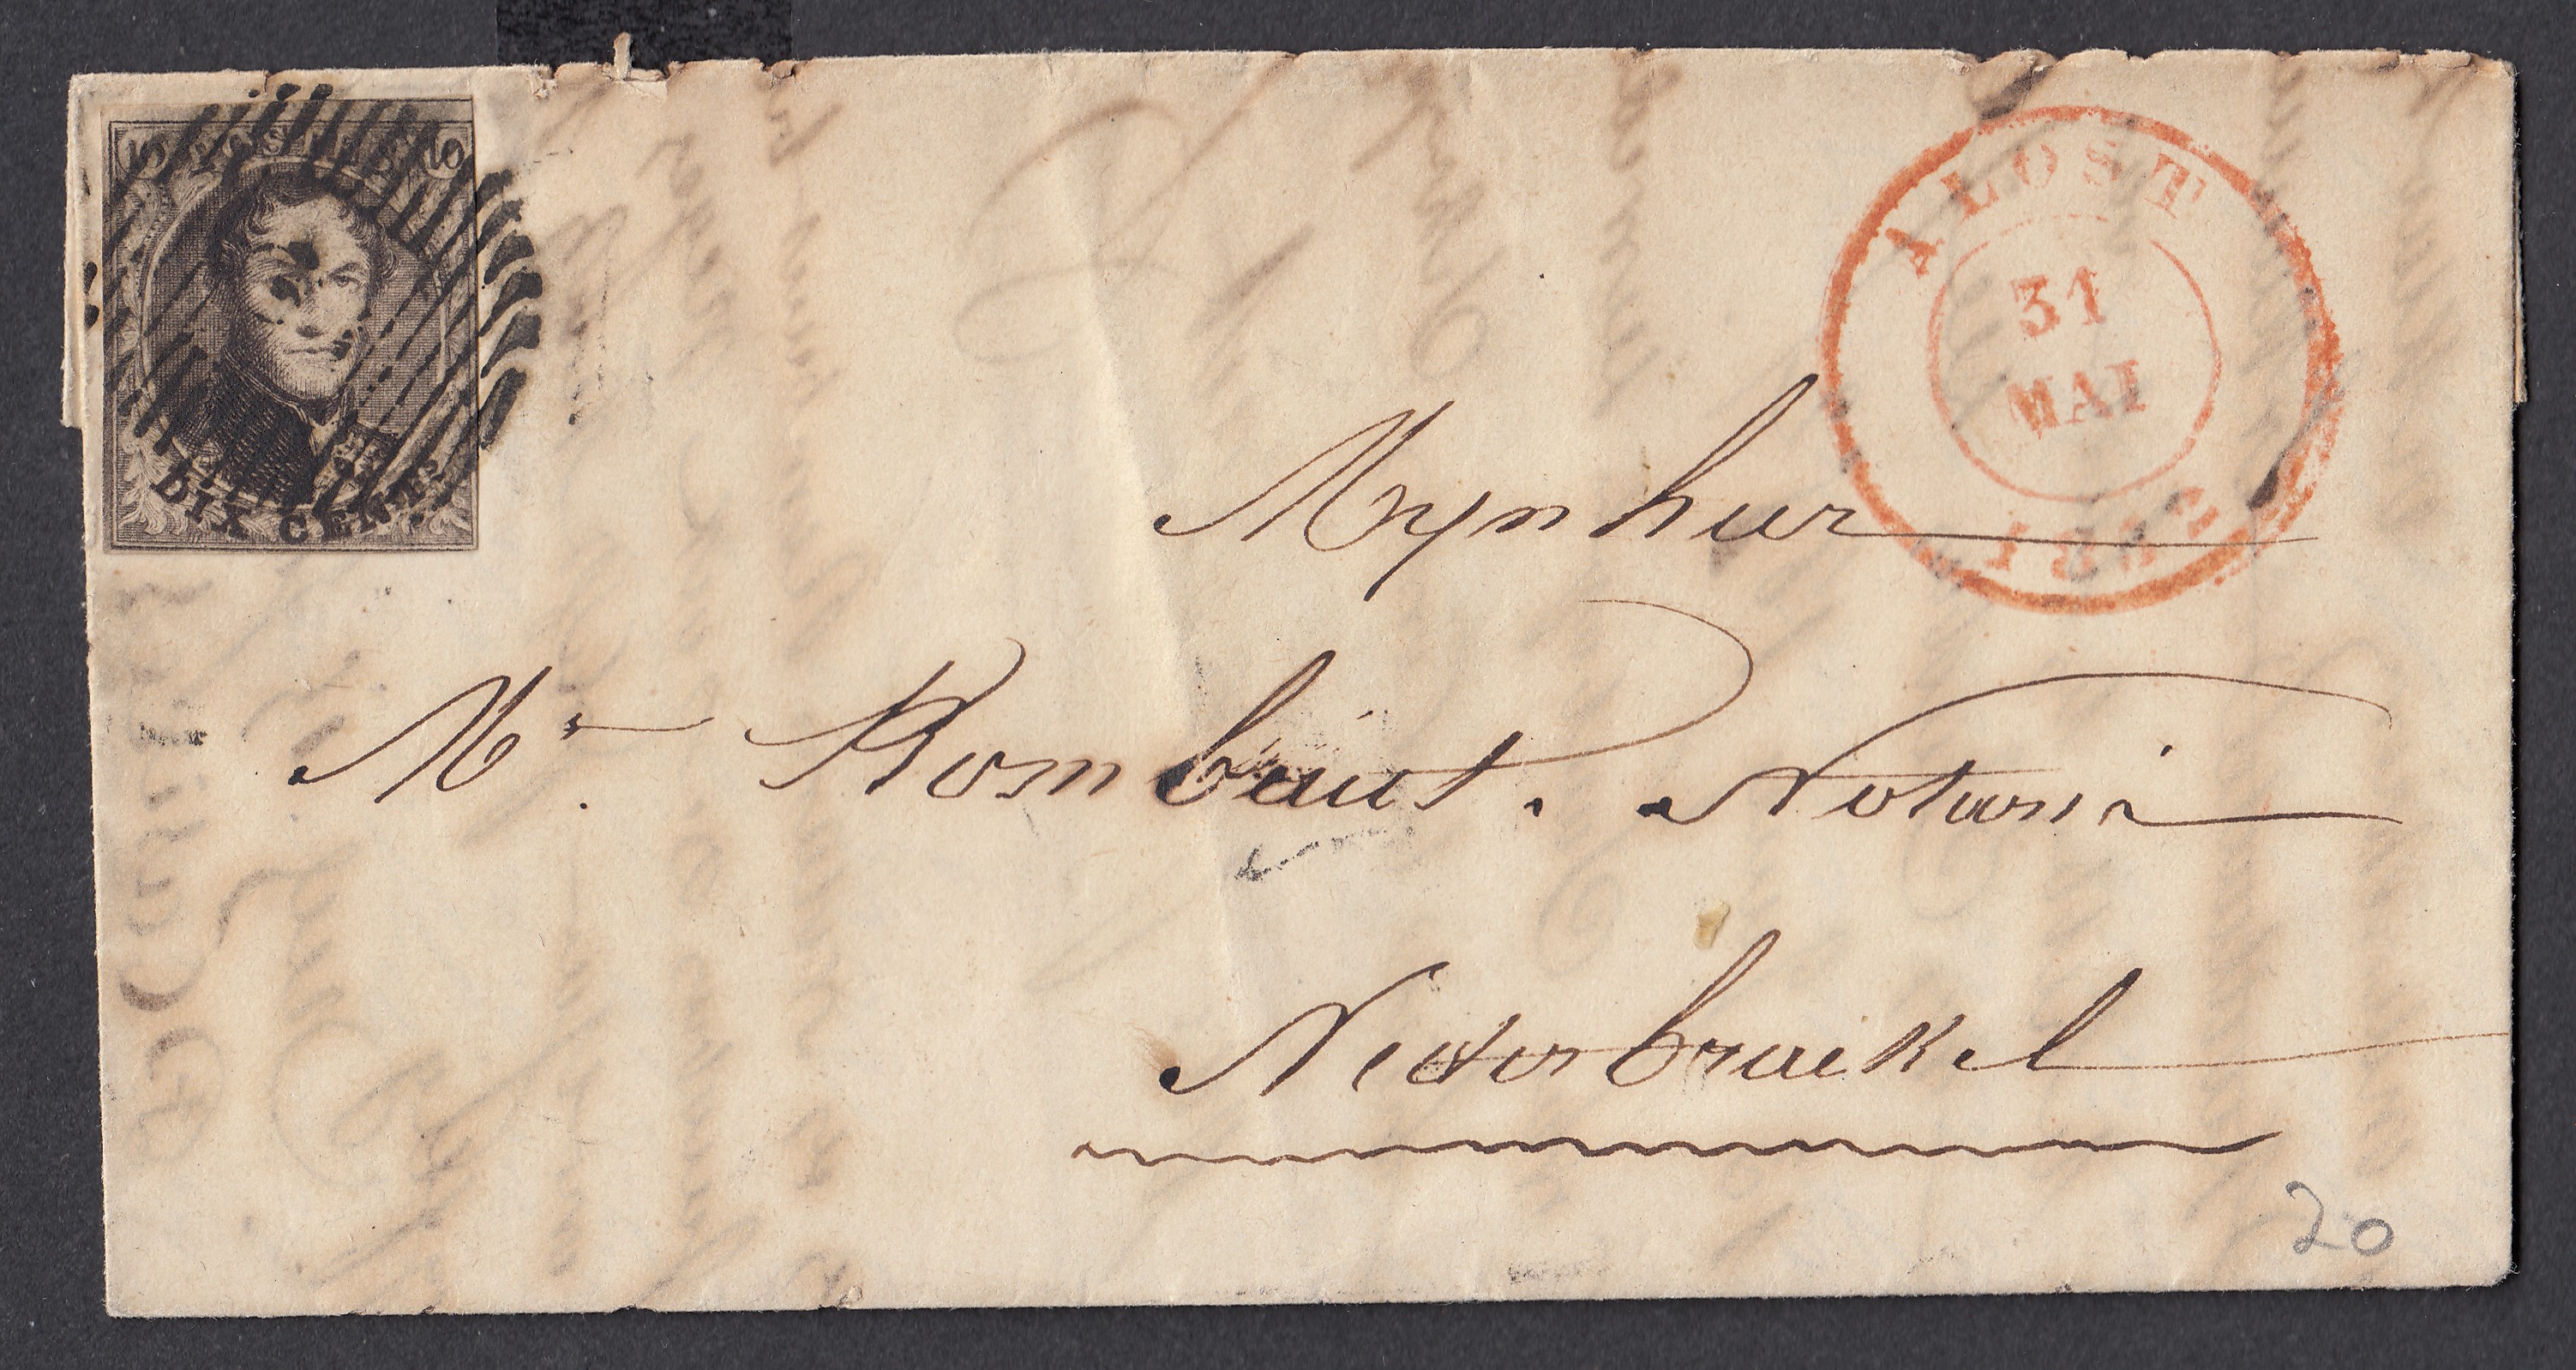 10 POSTES 10
DIX CENTS.
ALOST
31
MAI
1852
Mynheer
Mr Rombaut. Notaris
Nederbraekel
20